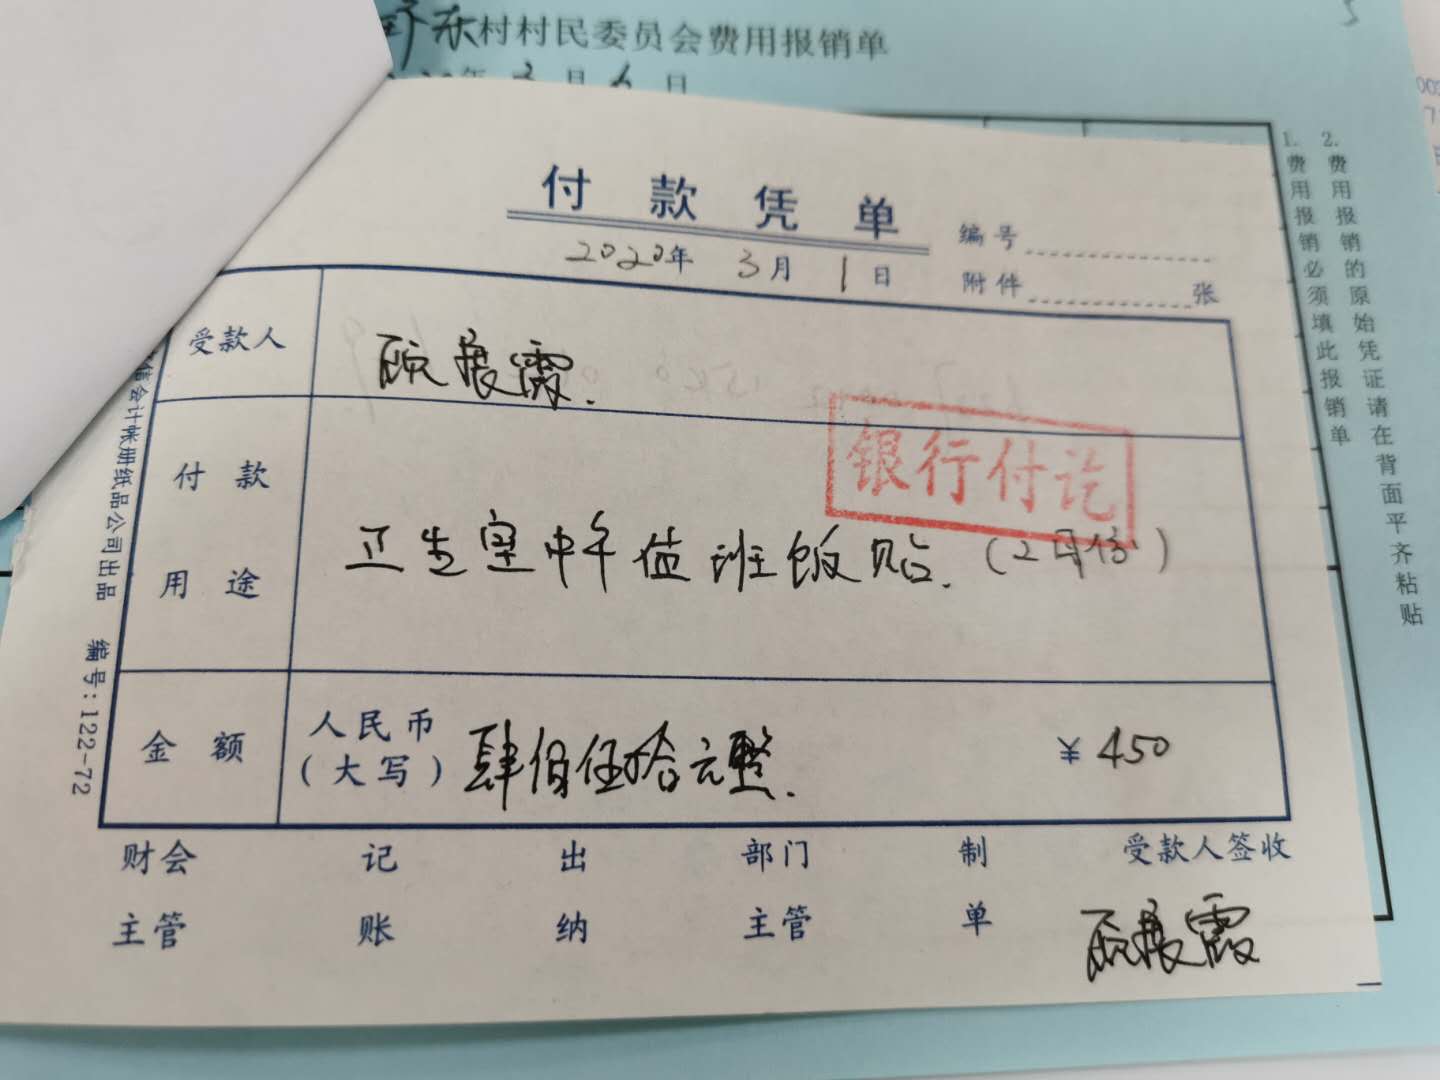 东村村民委员会费用报销单
年3月6日
付款凭单
2020年 3月 1日
编号
附件 张
受款人 顾振霞.
银行付讫
付款用途 卫生室中午值班饭贴.(2月份)
金额 人民币(大写) 肆佰伍拾元整. ¥450
财会主管 记账 出纳 部门主管 制单 受款人签收
顾振霞
信会计帐册纸品公司出品 编号:122-72
1. 费用报销必须填此报销单
2. 费用报销的原始凭证请在背面平齐粘贴